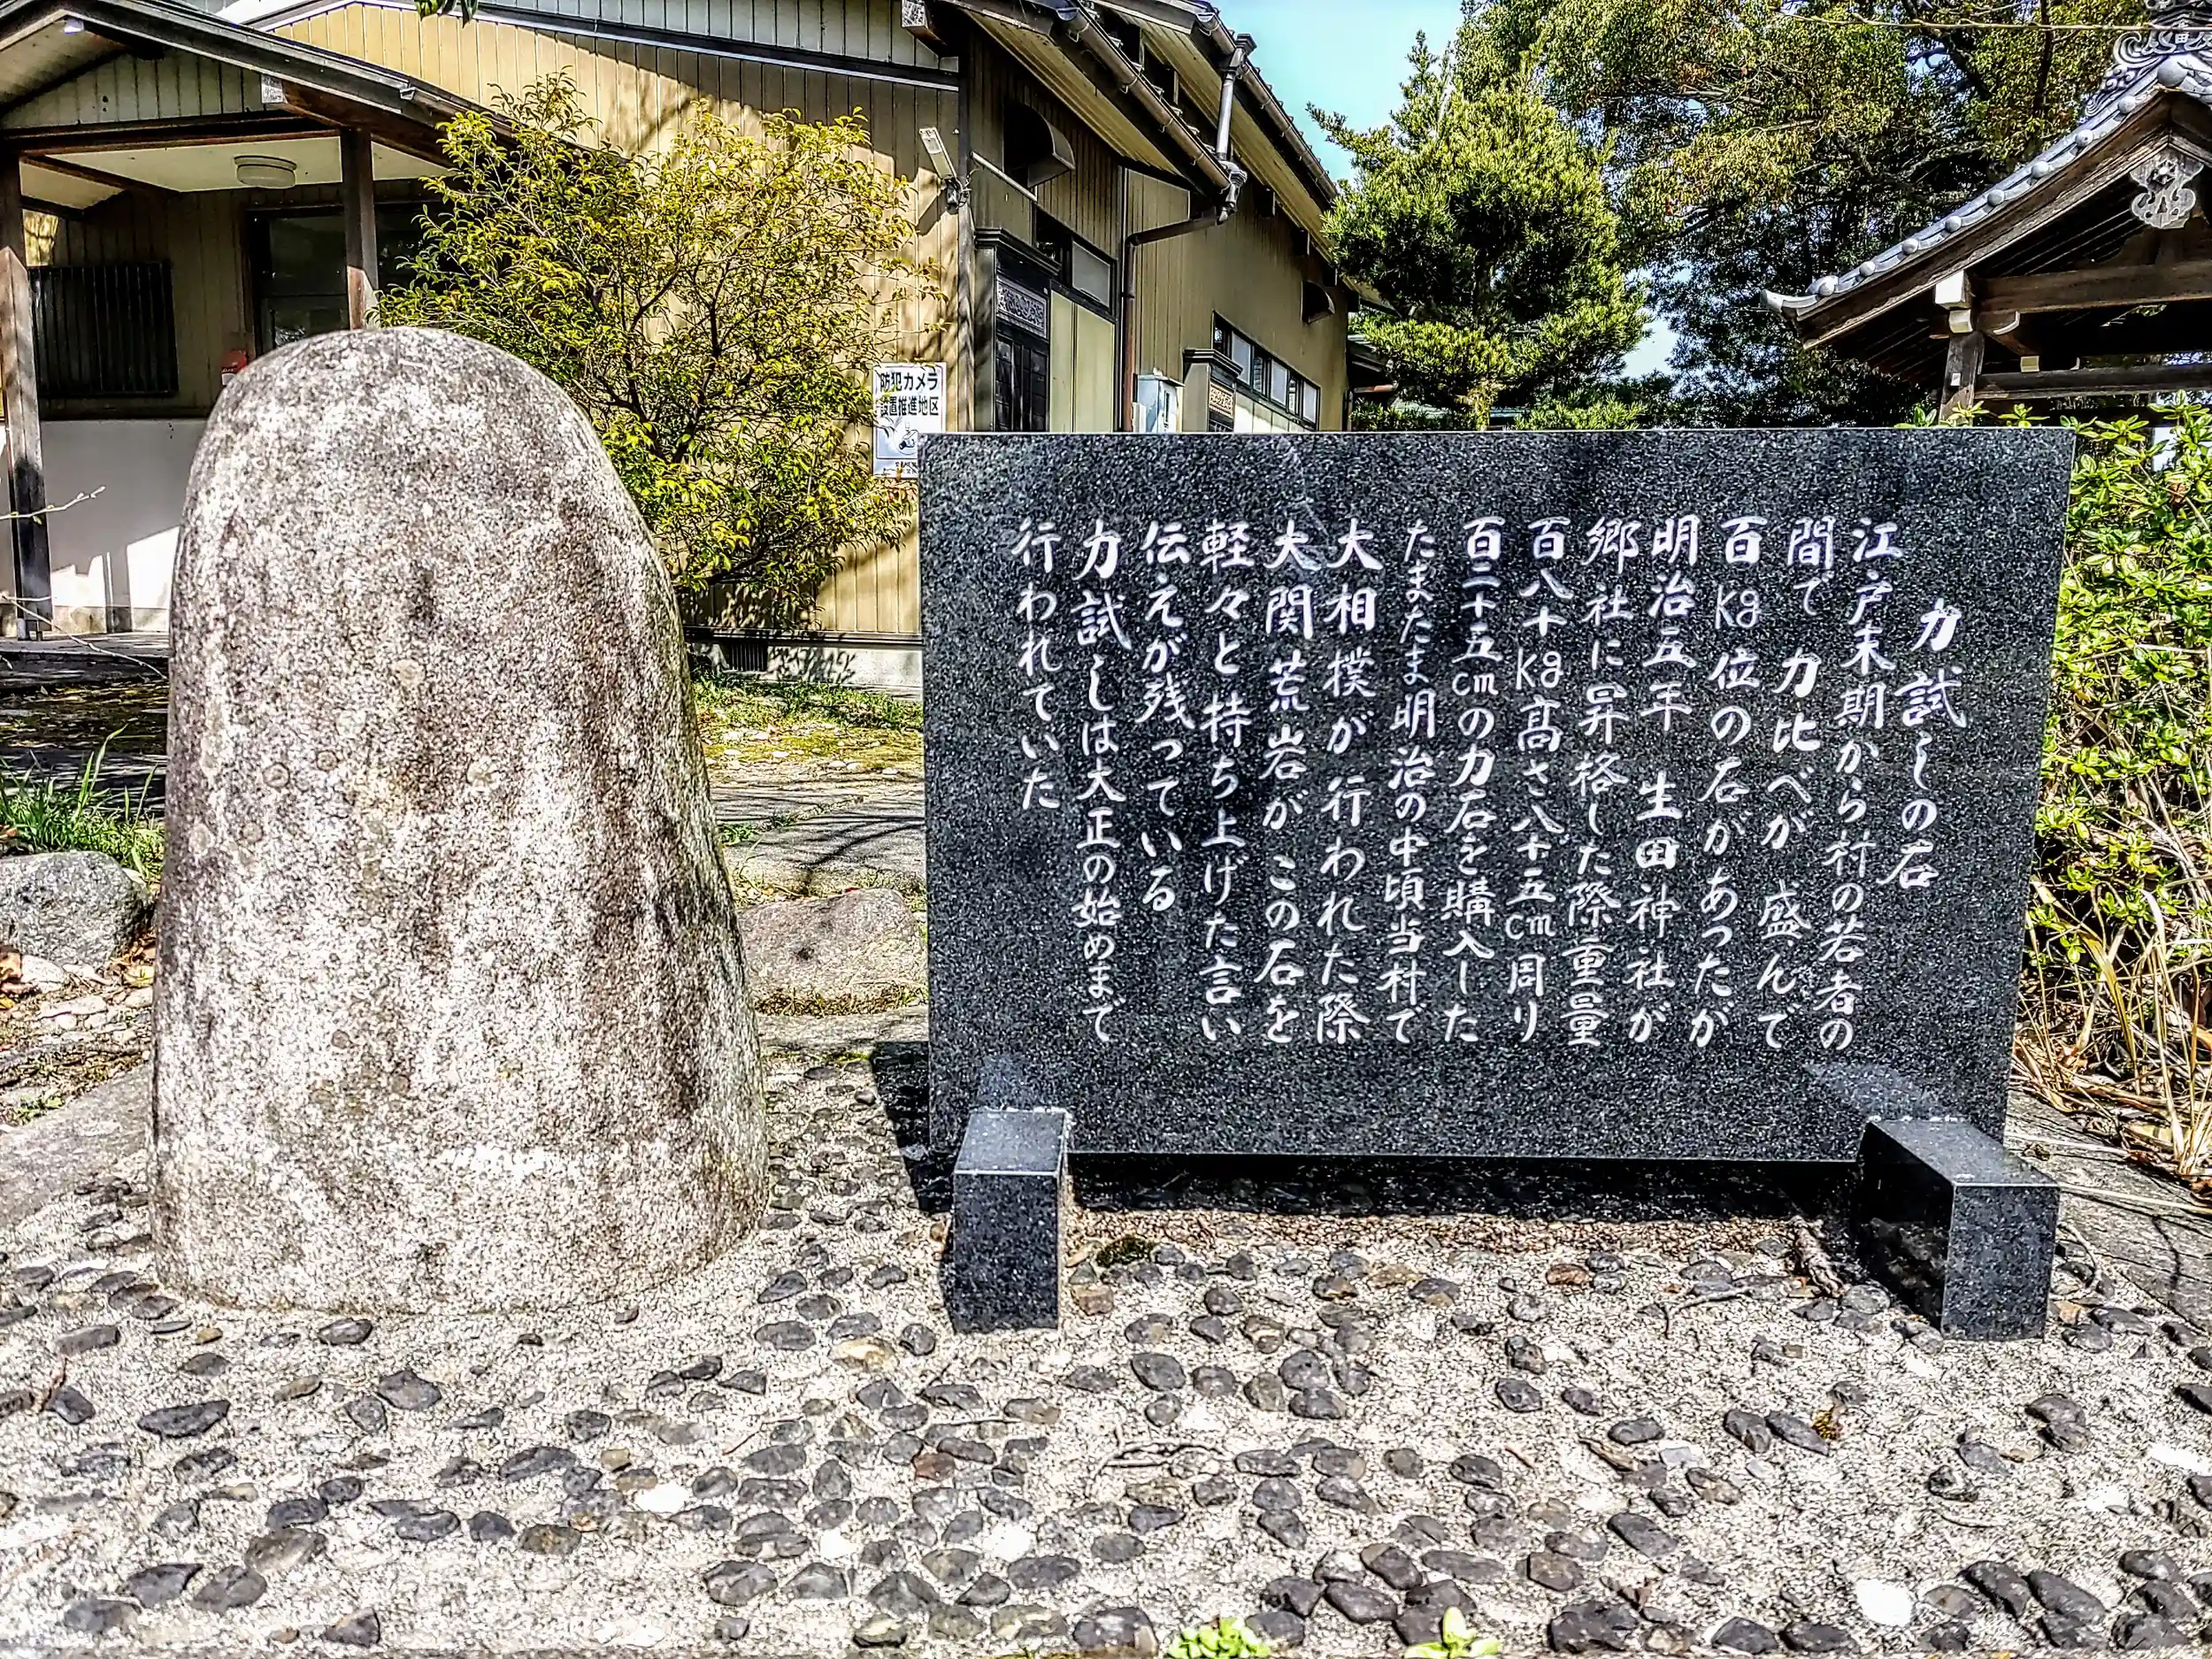 力試しの石
江戸末期から村の若者の
間で力比べが盛んで
百kg位の石があったが
明治五年 生田神社が
郷社に昇格した際重量
百八十kg高さ八十五cm周り
百二十五cmの力石を購入した
たまたま明治の中頃当村で
大相撲が行われた際
大関荒岩がこの石を
軽々と持ち上げた言い
伝えが残っている
力試しは大正の始めまで
行われていた
防犯カメラ
設置推進地区